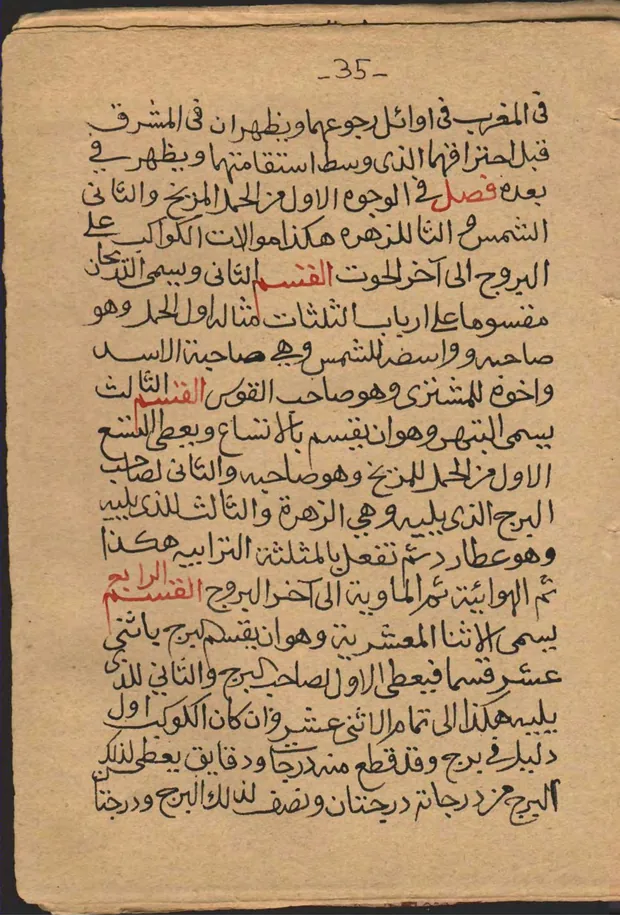 -35-
فى المغرب فى اوائل رجوعهما ويظهران فى المشرق
قبل احتراقهما الذى وسط استقامتهما ويظهر فى
بعده فصل فى الوجوه الاول من الحمل المريخ والثانى
الشمس والثالث للزهره هكذا موالات الكواكب على
البروج الى آخر الحوت القسم الثانى ويسمى
مقسوما على ارباب الثلثات مثاله اول الحمل وهو
صاحبه وواسطه للشمس وهي صاحبة الاسد
واخره للمشترى وهو صاحب القوس القسم الثالث
يسمى البتهر وهو ان يقسم بالاتساع ويعطى التسع
الاول من الحمل للمريخ وهو صاحبه والثانى لصاحب
البرج الذى يليه وهي الزهرة والثالث للذى يليه
وهو عطارد ثم تفعل بالمثلثة الترابيه هكذا
ثم الهوائية ثم الماوية الى آخر البروج القسم الرابع
يسمى الاثنا المعشرية وهو ان يقسم البرج باثنى
عشر قسما فيعطى الاول لصاحب البرج والثاني للذى
يليه هكذا الى تمام الاثنى عشر وان كان الكوكب اول
دليل فى برج وقد قطع منه درجا ودقايق يعطى لذلك
البرج من درجاته درجتان ونصف لذالك البرج ودرجتا